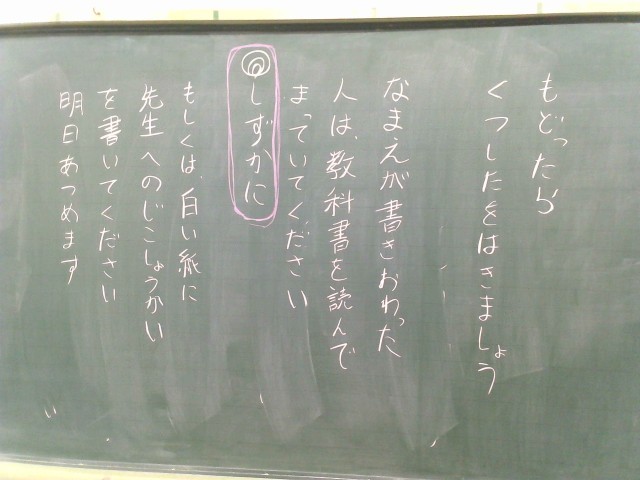 もどったら
くつしたをはきましょう
なまえが書きおわった
人は、教科書を読んで
まっていてください
◎しずかに
もしくは、白い紙に
先生へのじこしょうかい
を書いてください
明日あつめます